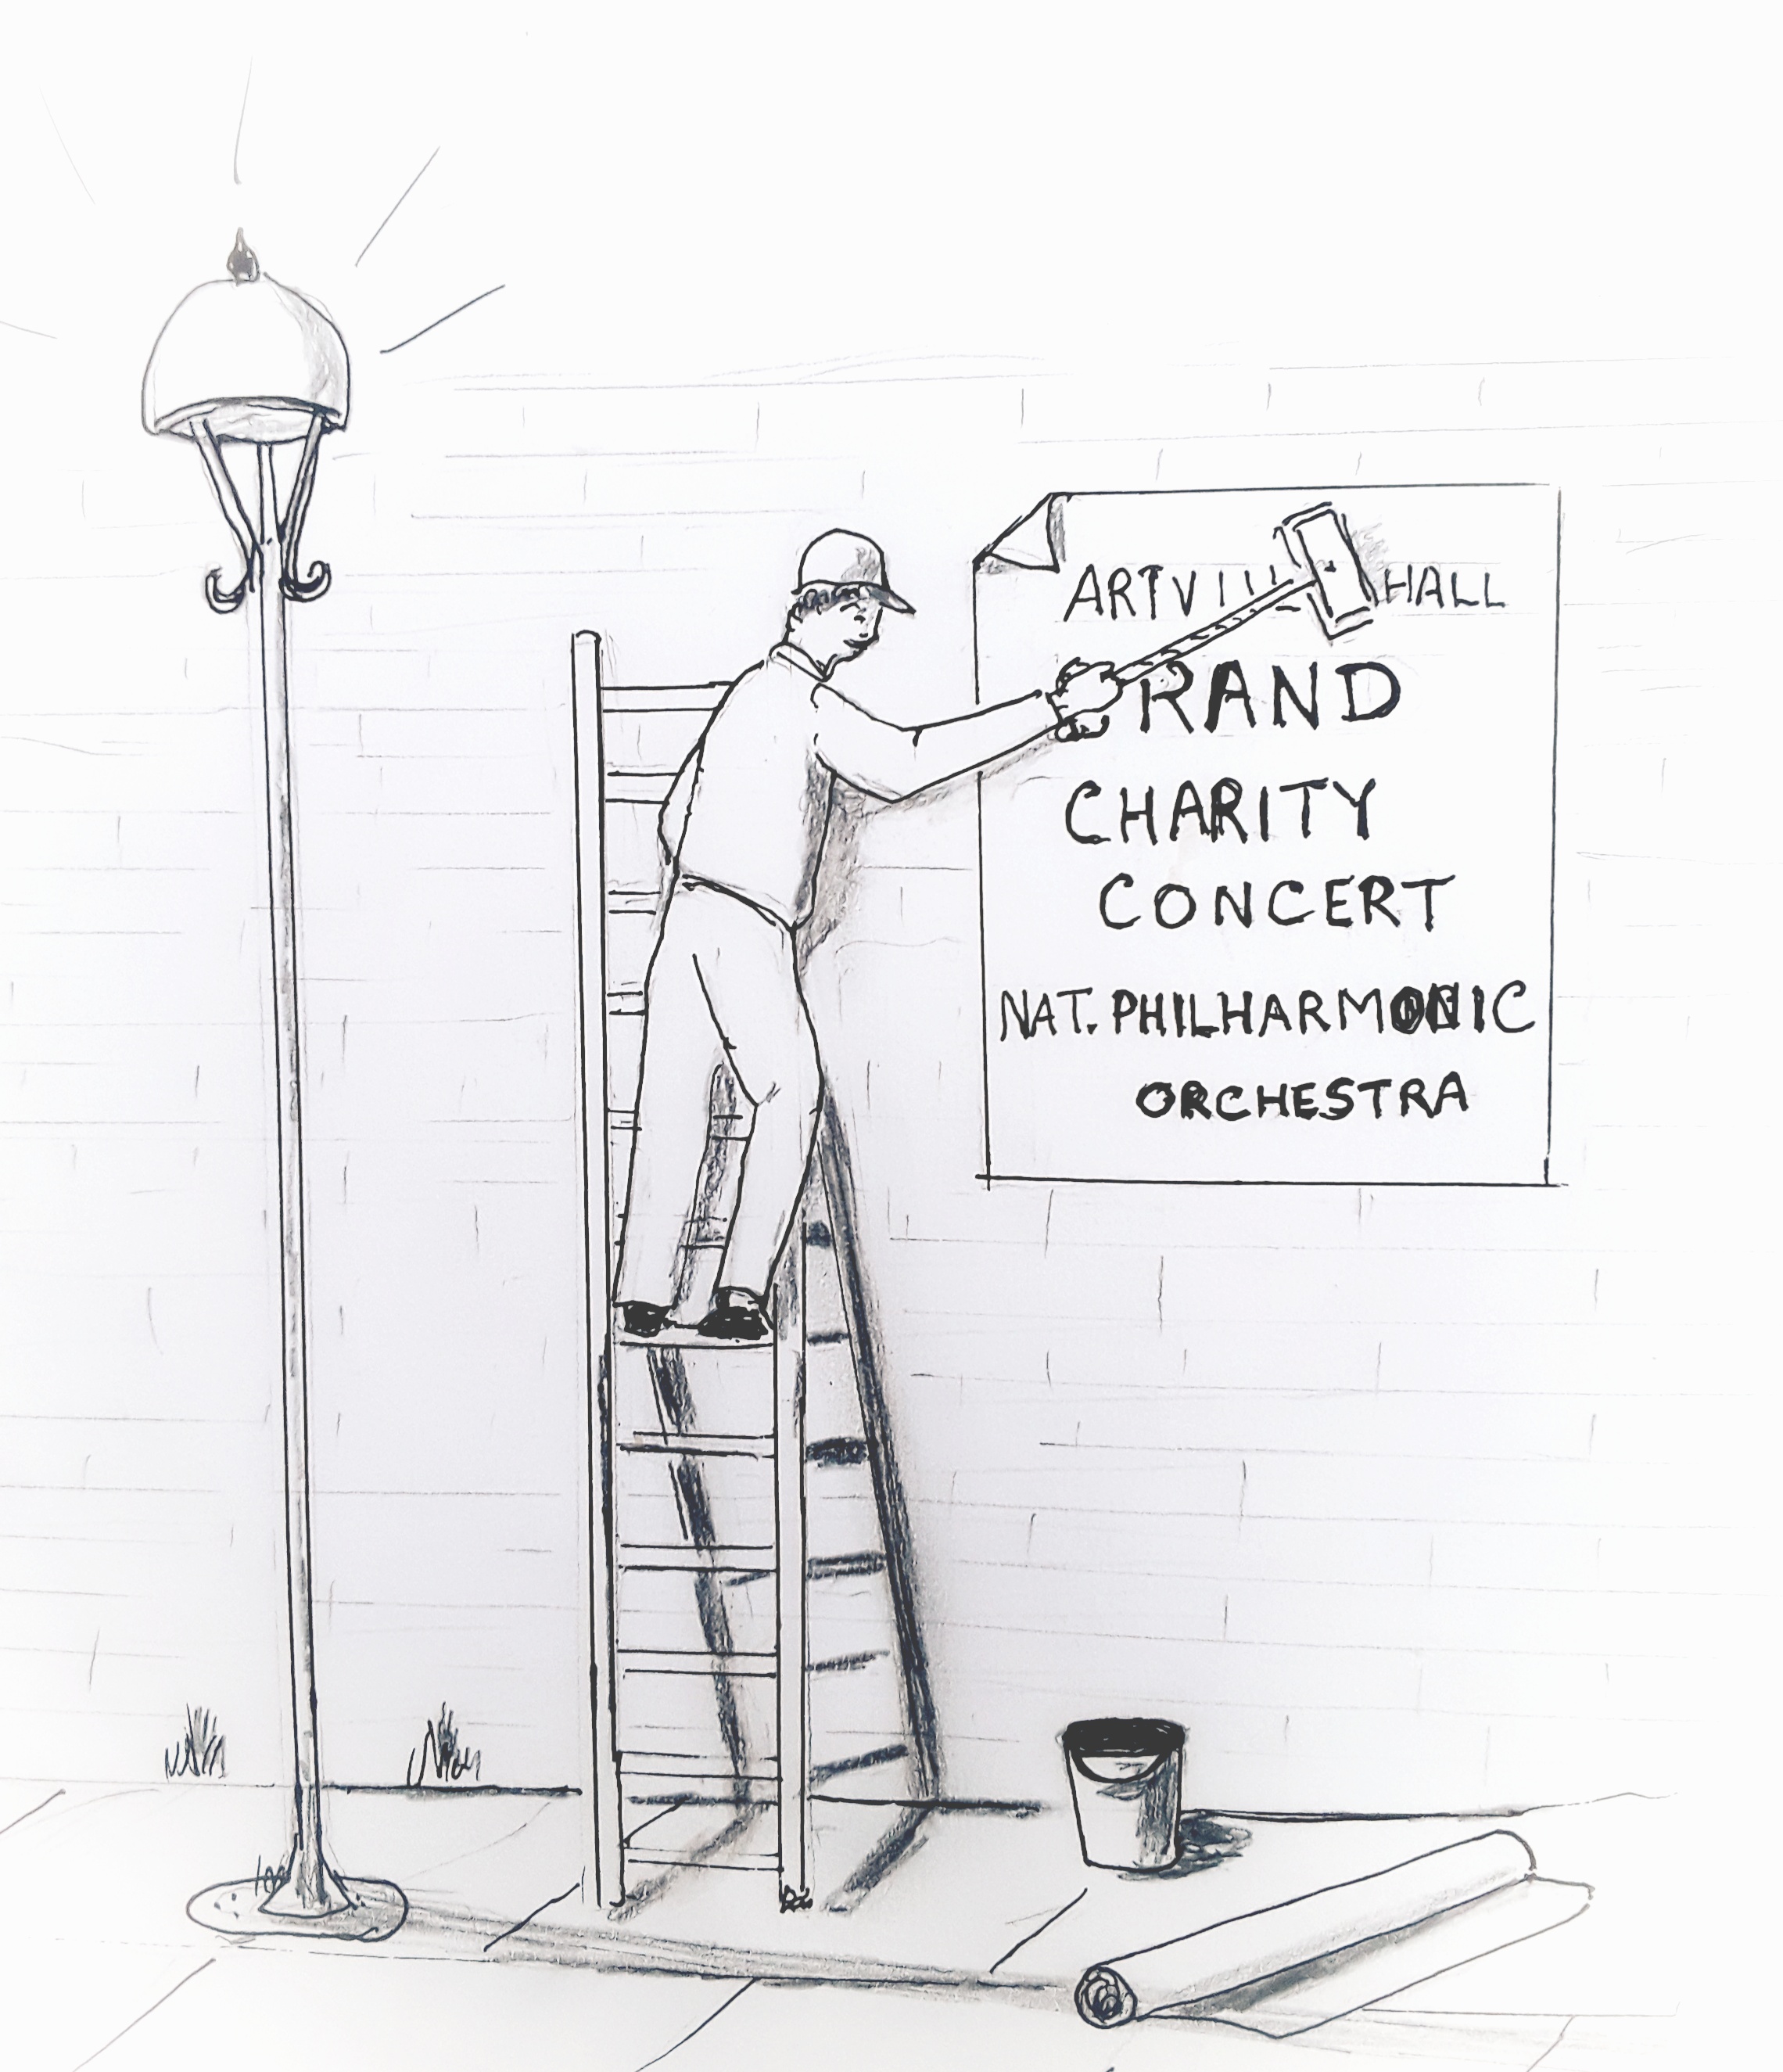 ARTVILL HALL
RAND
CHARITY
CONCERT
NAT. PHILHARMONIC
ORCHESTRA